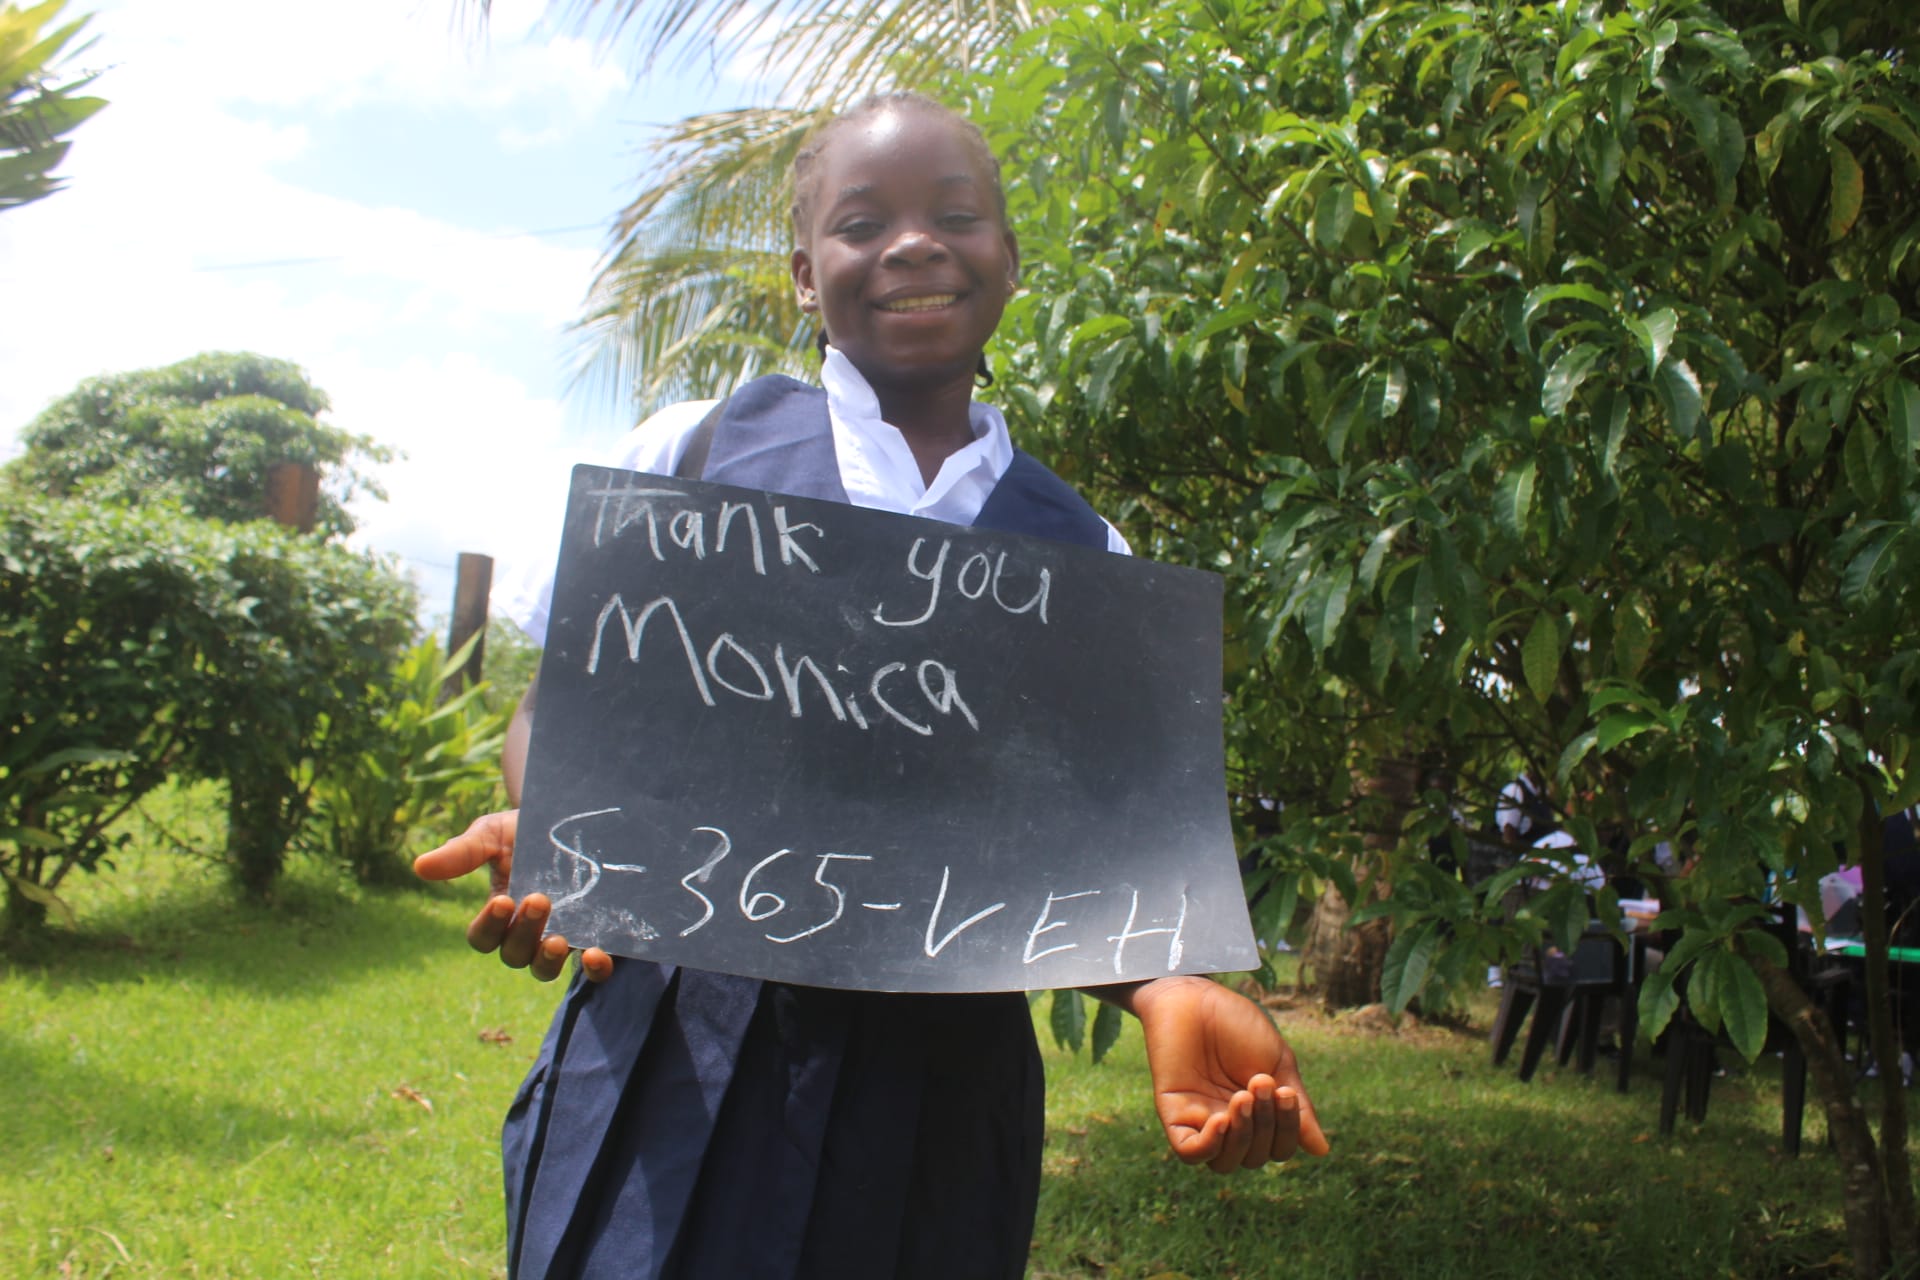 Thank you
Monica
S-365-VEH